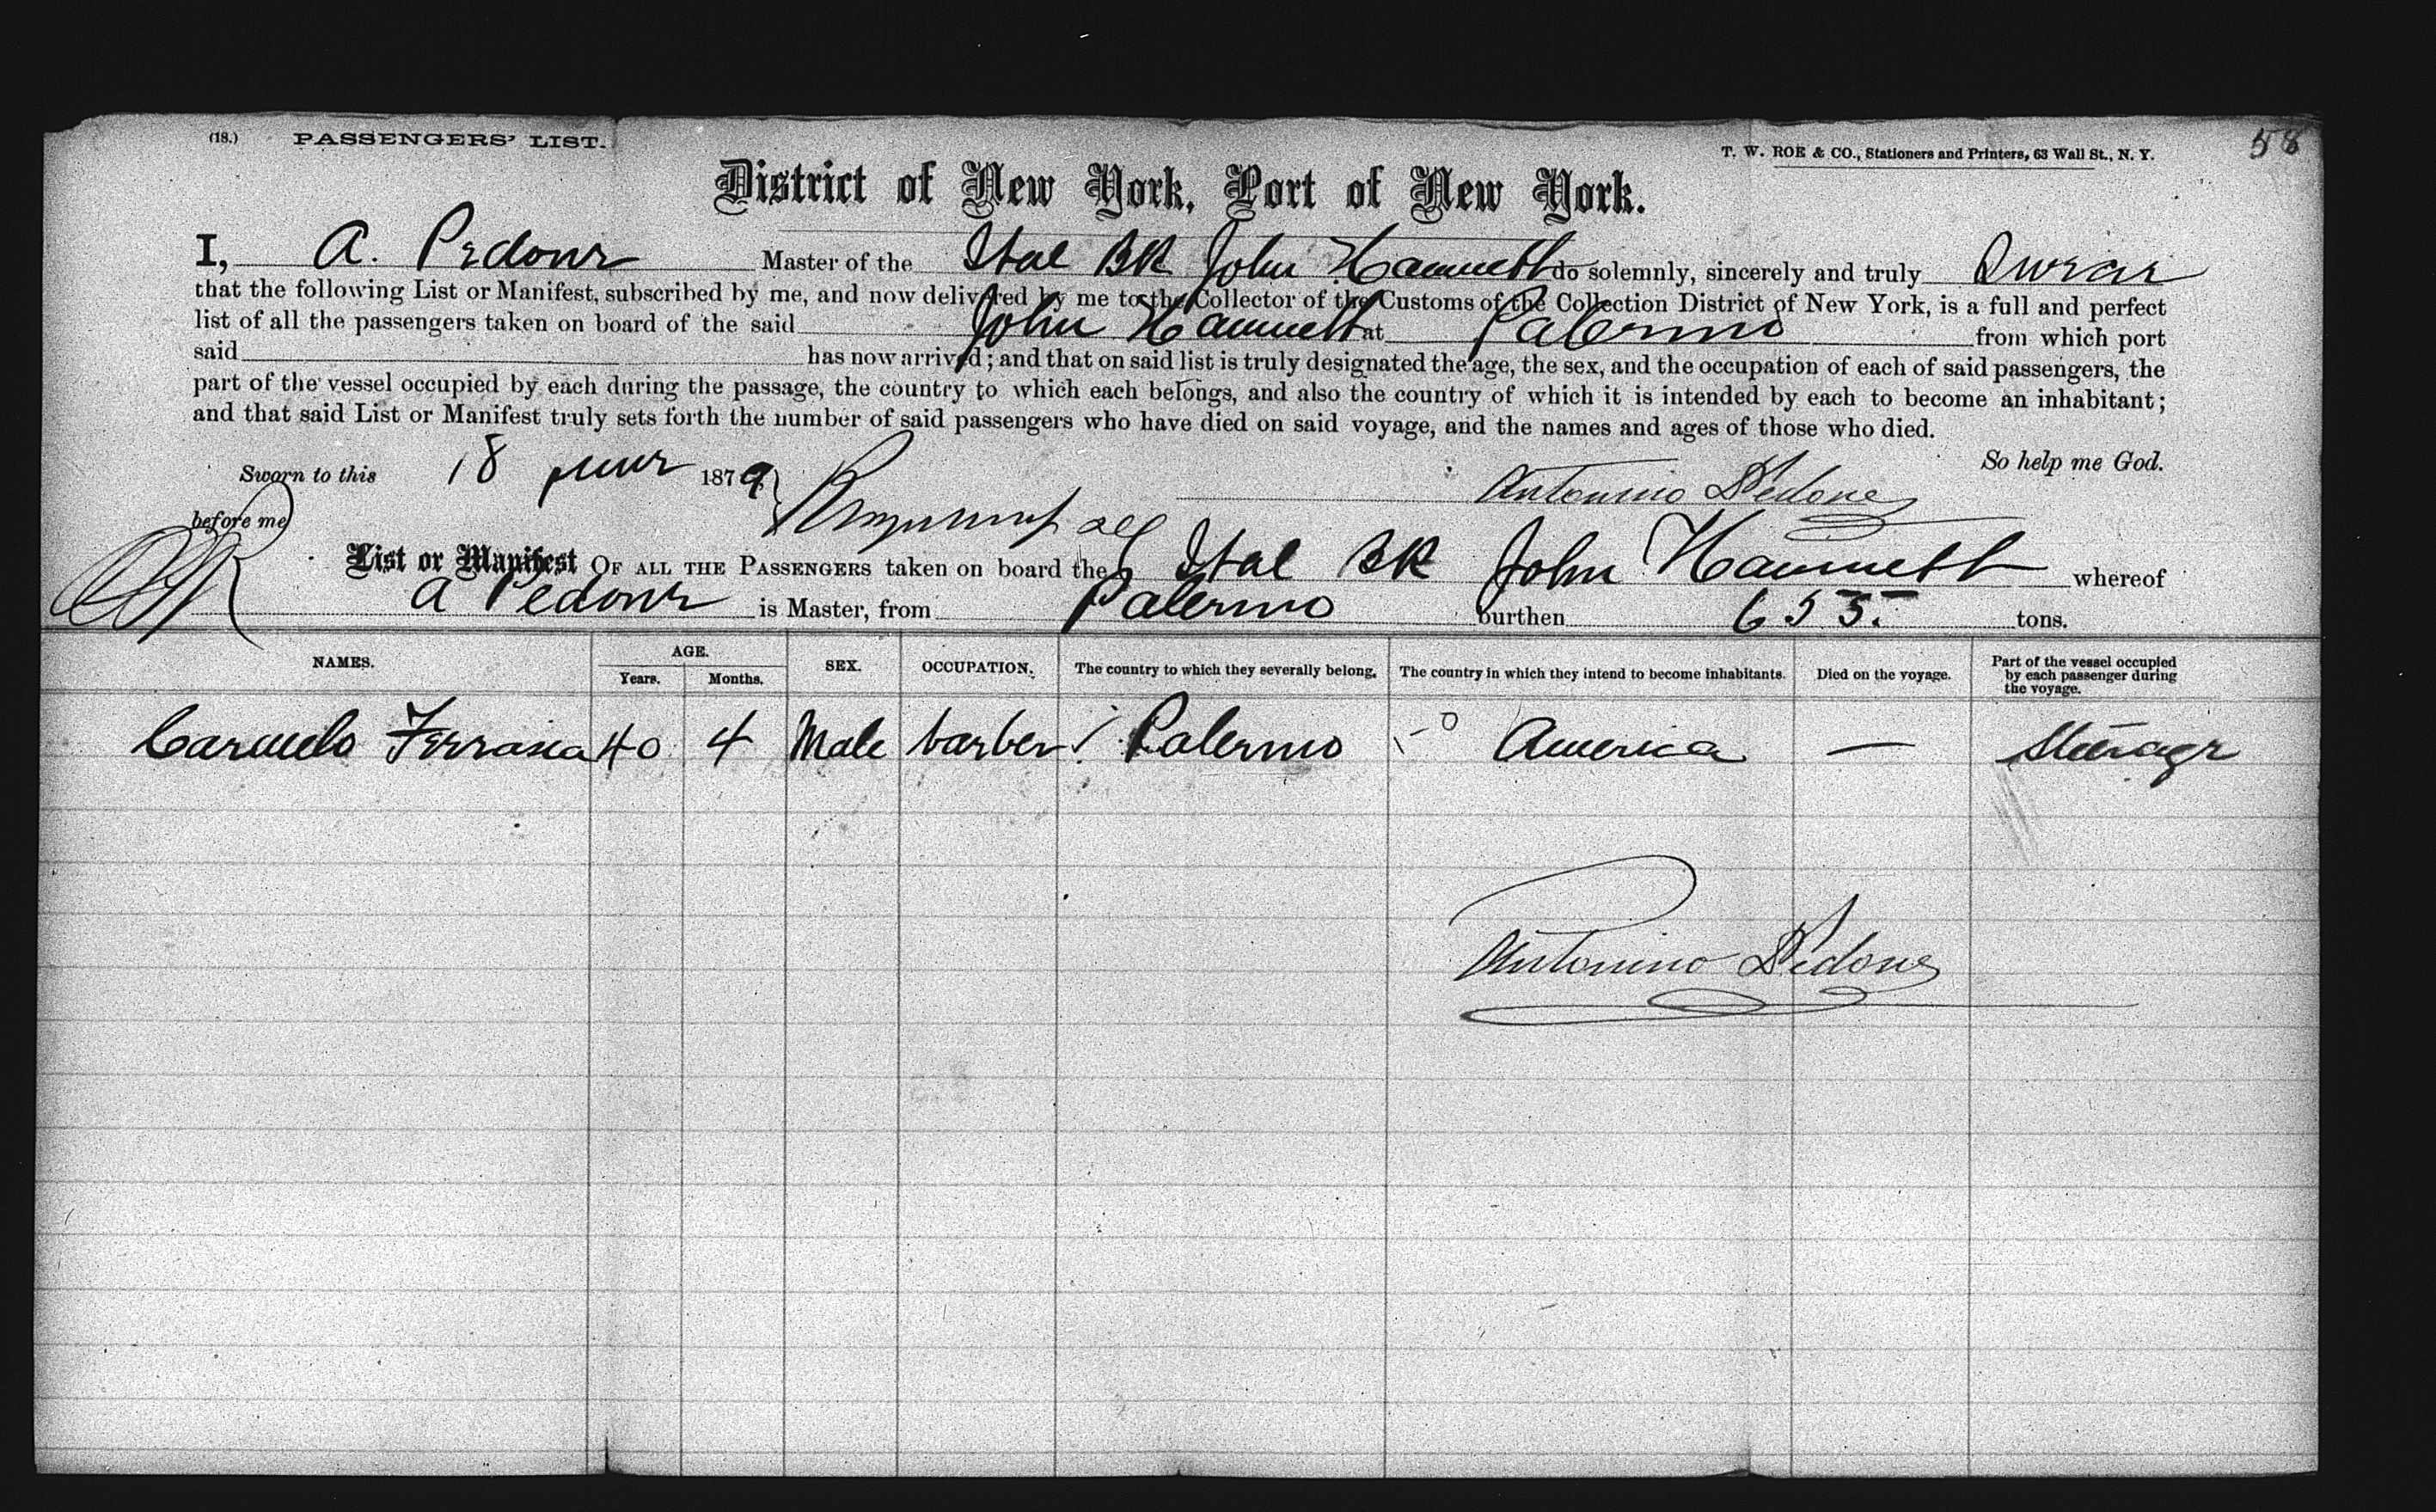 (18.) PASSENGERS' LIST.
T. W. ROE & CO., Stationers and Printers, 63 Wall St., N. Y.
58
District of New York, Port of New York.
I, A. Pedone Master of the Ital BK John Hammett do solemnly, sincerely and truly Swear
that the following List or Manifest, subscribed by me, and now delivered by me to the Collector of the Customs of the Collection District of New York, is a full and perfect
list of all the passengers taken on board of the said John Hammett at Palermo from which port
said has now arrived; and that on said list is truly designated the age, the sex, and the occupation of each of said passengers, the
part of the vessel occupied by each during the passage, the country to which each belongs, and also the country of which it is intended by each to become an inhabitant;
and that said List or Manifest truly sets forth the number of said passengers who have died on said voyage, and the names and ages of those who died.
So help me God.
Sworn to this 18 June 1879
Antonino Pedone
before me
List or Manifest OF ALL THE PASSENGERS taken on board the Ital BK John Hammett whereof
A Pedone is Master, from Palermo burthen 655. tons.
NAMES. AGE. Years. Months. SEX. OCCUPATION. The country to which they severally belong. The country in which they intend to become inhabitants. Died on the voyage. Part of the vessel occupied by each passenger during the voyage.
Carmelo 40 4 Male barber Palermo America — Steerage
Antonino Pedone